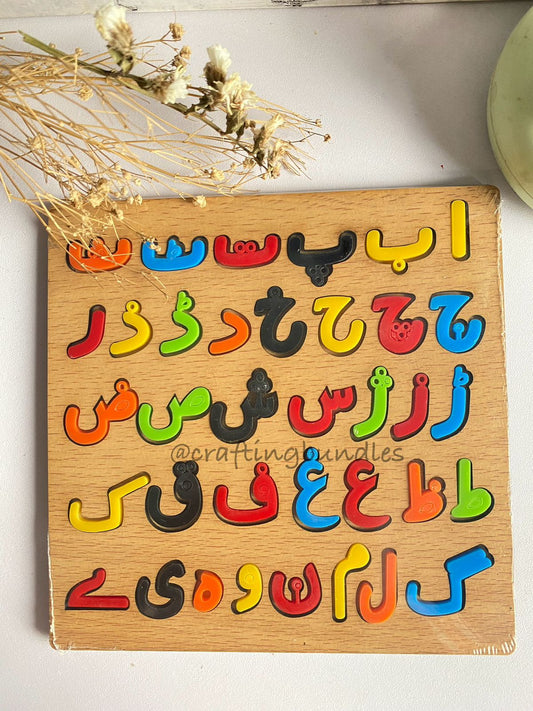 ا ب پ ت ٹ ث
ج چ ح خ د ڈ ذ ر
ڑ ز ژ س ش ص ض
@craftingbundles
ط ظ ع غ ف ق ک
گ ل م ن و ه ی ے